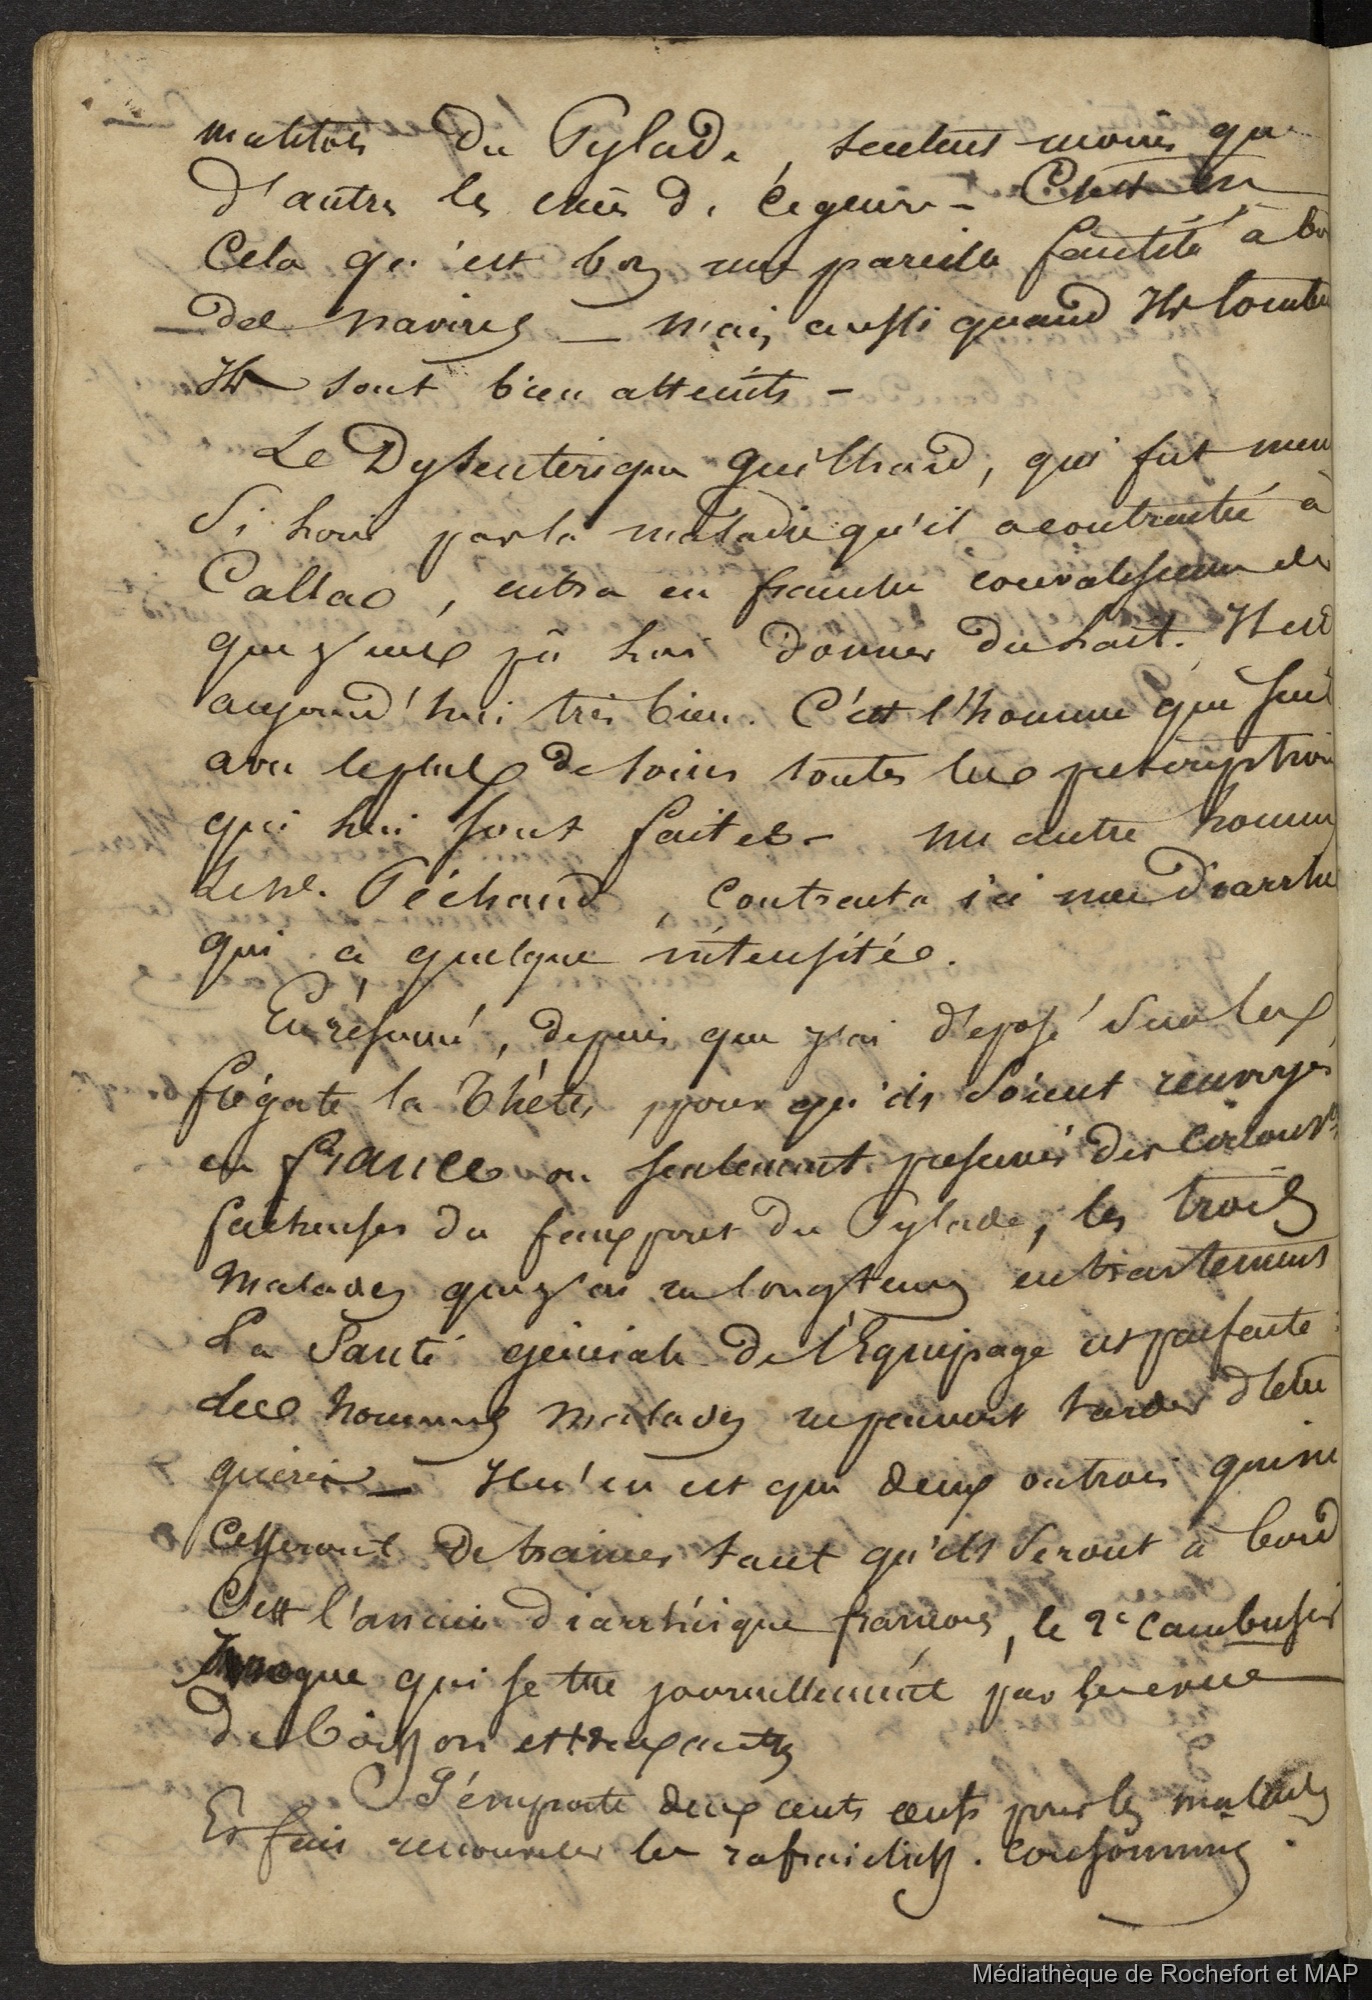 matelots du Pylade, sentent moins que
d'autres les excès de Ce genre - C'est en
Cela qu'est bon une pareille faculté à bord
des navires _ mais aussi quand Ils tombent
Ils sont bien atteints -
Le Dysenterique Guilhard, qui fut mené
Si loin par la maladie qu'il a contractée à
Callao, entra en franche convalescence dès
que j'eus pû lui donner du lait. Il est
aujourd'hui très bien. C'est l'homme qui suit
avec le plus de soins toutes les prescriptions
qui lui sont faites - un autre homme
Le né. Péchaud, contracta ici une diarrhée
qui a quelque intensitée.
En résumé, depuis que j'ai déposé sur la
frégate la Thétis, pour qu'ils soient renvoyés
en france ou seulement préservés des circonst.
facheuses du faux pont du Pylade, les trois
Malades que j'ai eu longtems en traitement
La Santé générale de l'Equipage est parfaite :
des hommes malades ne peuvent tarder d'être
guéris _ Il n'en est que deux ou trois qui ne
Cesseront de trainer tant qu'ils seront à bord
C'est l'ancien diarrhéique françois, le 2e Cambusier
qui se tue journellement par l'excès
de boisson et deux autres
J'emporte deux cents oeufs pour les malades
Et fais renouveler les rafraichiss. consommés.
Médiathèque de Rochefort et MAP